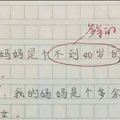 的
妈妈是个不到40岁的
。我的妈妈是个多余